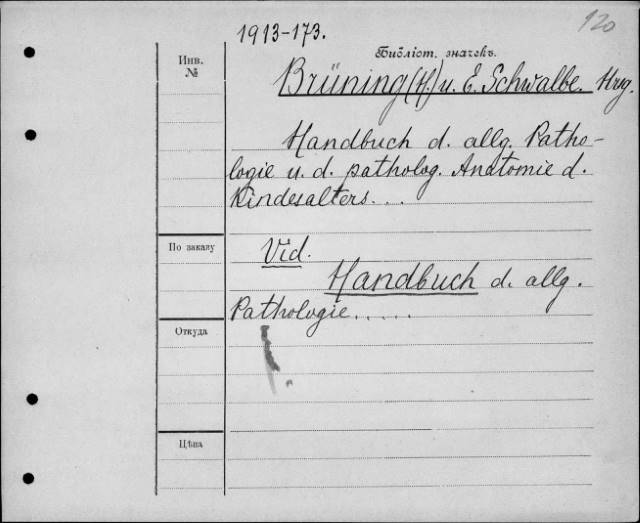 120
1913-173.
Библіот. значекъ.
Инв.
№
Brüning (H.) u. E. Schwalbe. Hrsg.
Handbuch d. allg. Patho-
logie u. d. patholog. Anatomie d.
Kindesalters...
По заказу
Vid.
Handbuch d. allg.
Pathologie.....
Откуда
Цѣна